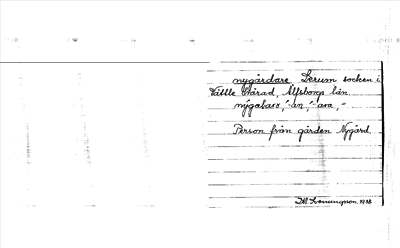 nygårdare Lerum socken i
Vättle härad, Älfsborgs län
nýgalaro, -ån, -ara, -
Person från gården Nygård.
1938